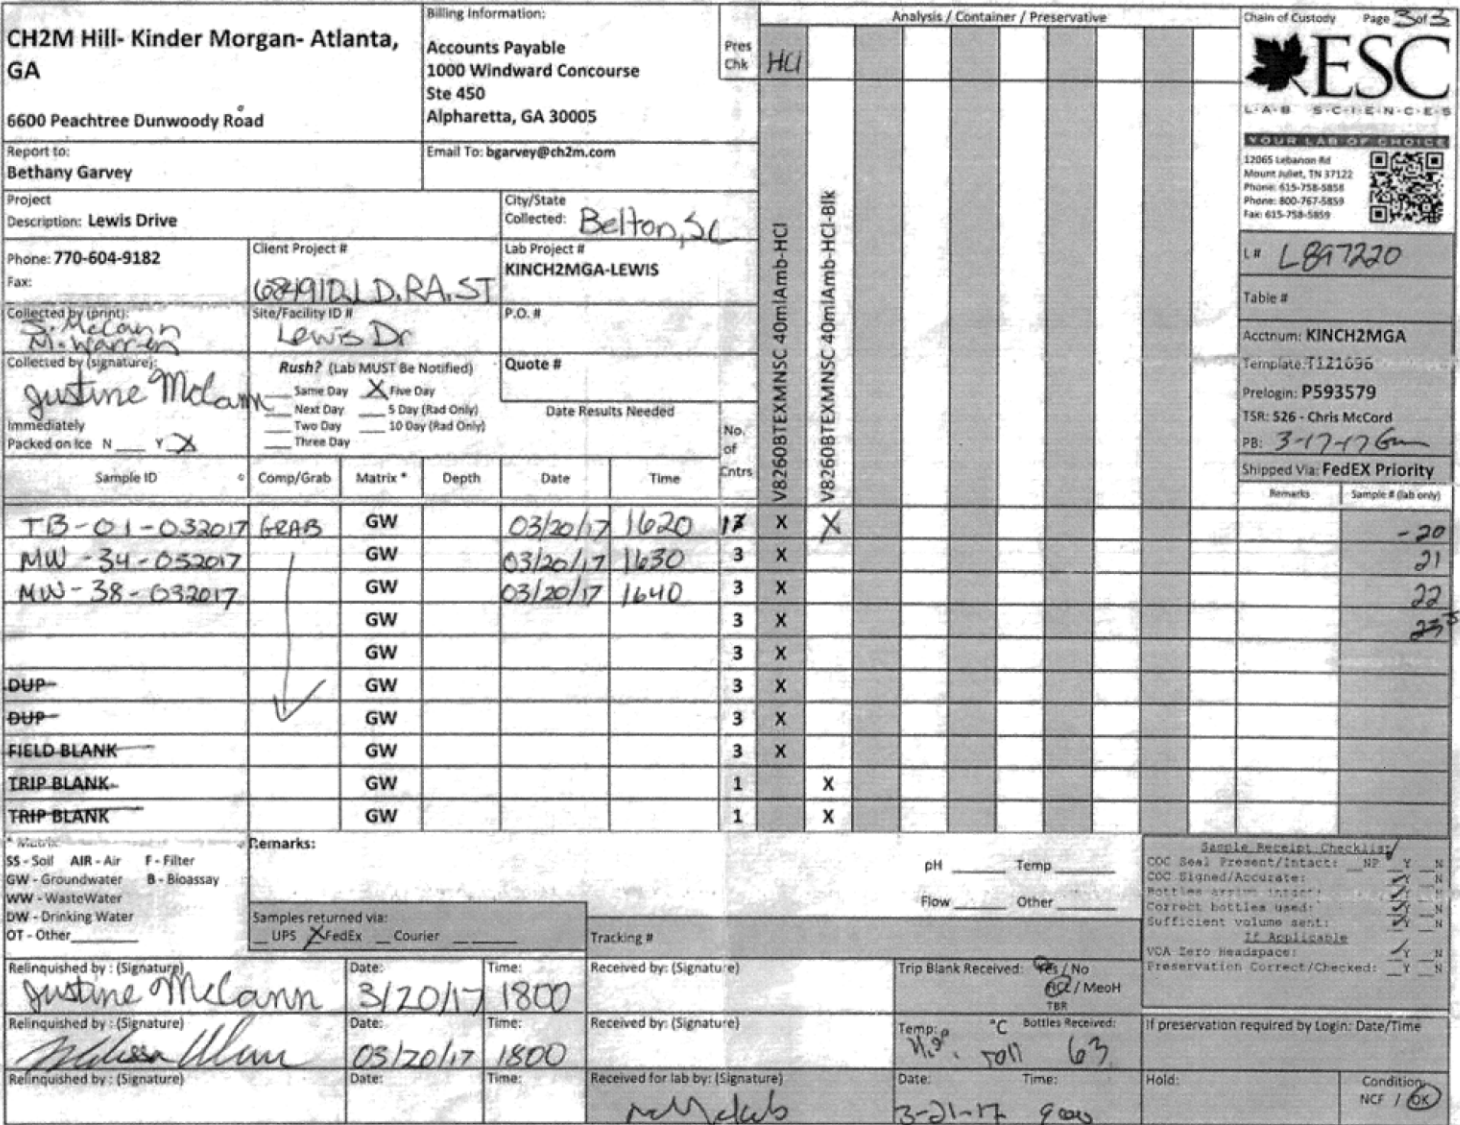 CH2M Hill- Kinder Morgan- Atlanta, GA
6600 Peachtree Dunwoody Road
Billing Information:
Accounts Payable
1000 Windward Concourse
Ste 450
Alpharetta, GA 30005
Pres Chk
HCl
Analysis / Container / Preservative
Chain of Custody Page 3 of 3
ESC
L·A·B S·C·I·E·N·C·E·S
YOUR LAB OF CHOICE
12065 Lebanon Rd
Mount Juliet, TN 37122
Phone: 615-758-5858
Phone: 800-767-5859
Fax: 615-758-5859
Report to:
Bethany Garvey
Email To: bgarvey@ch2m.com
Project
Description: Lewis Drive
City/State
Collected: Belton, SC
Phone: 770-604-9182
Fax:
Client Project #
Lab Project #
KINCH2MGA-LEWIS
L# L897220
Table #
Collected by (print):
J. McCann
M. Warren
Site/Facility ID #
Lewis Dr
P.O. #
Acctnum: KINCH2MGA
Template: T121696
Prelogin: P593579
TSR: 526 - Chris McCord
PB: 3-17-17
Shipped Via: FedEX Priority
Collected by (signature):
Justine McCann
Rush? (Lab MUST Be Notified)
Same Day X Five Day
Next Day 5 Day (Rad Only)
Two Day 10 Day (Rad Only)
Three Day
Quote #
Date Results Needed
Immediately
Packed on Ice N Y X
No. of Cntrs
V8260BTEXMNSC 40mlAmb-HCl
V8260BTEXMNSC 40mlAmb-HCl-Blk
Sample ID Comp/Grab Matrix * Depth Date Time Remarks Sample # (lab only)
TB-01-032017 GRAB GW 03/20/17 1620 1 X X -20
MW-34-032017 GW 03/20/17 1630 3 X 21
MW-38-032017 GW 03/20/17 1640 3 X 22
GW 3 X 23
GW 3 X
DUP GW 3 X
DUP GW 3 X
FIELD BLANK GW 3 X
TRIP BLANK GW 1 X
TRIP BLANK GW 1 X
* Matrix:
SS - Soil AIR - Air F - Filter
GW - Groundwater B - Bioassay
WW - WasteWater
DW - Drinking Water
OT - Other
Remarks:
Samples returned via:
UPS X FedEx Courier
Tracking #
pH Temp
Flow Other
Sample Receipt Checklist
COC Seal Present/Intact: NP Y N
COC Signed/Accurate: Y N
Bottles arrive intact: Y N
Correct bottles used: Y N
Sufficient volume sent: Y N
If Applicable
VOA Zero Headspace: Y N
Preservation Correct/Checked: Y N
Relinquished by : (Signature) Justine McCann
Date: 3/20/17
Time: 1800
Received by: (Signature)
Trip Blank Received: Yes / No
HCL / MeoH
TBR
Relinquished by : (Signature)
Date: 03/20/17
Time: 1800
Received by: (Signature)
Temp: °C Bottles Received: 63
If preservation required by Login: Date/Time
Relinquished by : (Signature)
Date:
Time:
Received for lab by: (Signature)
Date: 3-21-17
Time: 900
Hold:
Condition:
NCF / OK